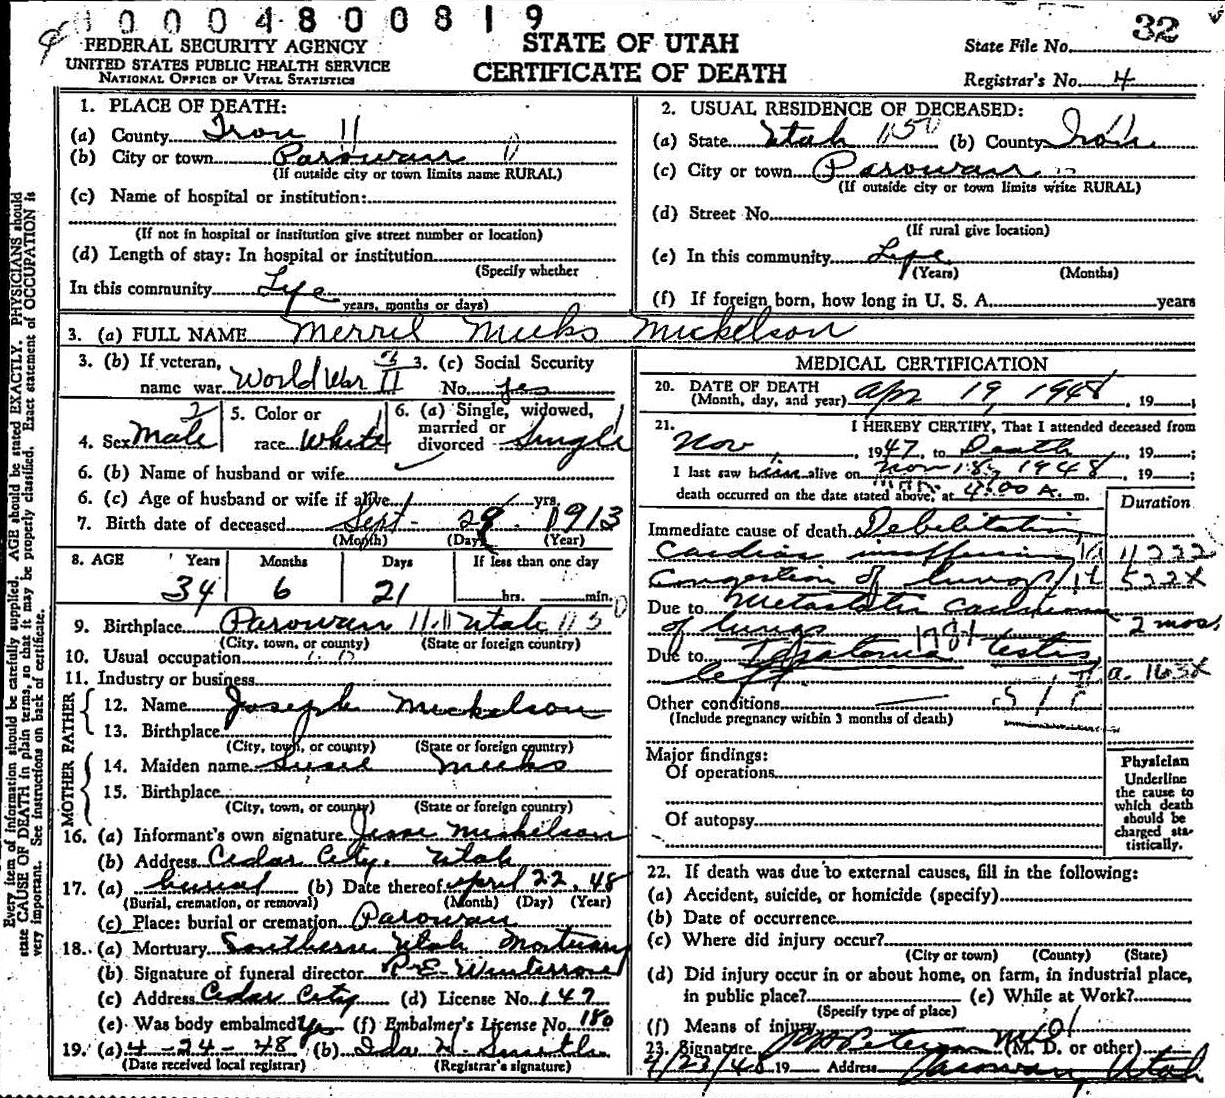 1000480081 9
32
FEDERAL SECURITY AGENCY
UNITED STATES PUBLIC HEALTH SERVICE
NATIONAL OFFICE OF VITAL STATISTICS
STATE OF UTAH
CERTIFICATE OF DEATH
State File No.
Registrar's No. 4
Every item of information should be carefully supplied. AGE should be stated EXACTLY. PHYSICIANS should
state CAUSE OF DEATH in plain terms, so that it may be properly classified. Exact statement of OCCUPATION is
very important. See instructions on back of certificate.
1. PLACE OF DEATH:
(a) County Iron 11
(b) City or town Parowan
(If outside city or town limits name RURAL)
(c) Name of hospital or institution:
(If not in hospital or institution give street number or location)
(d) Length of stay: In hospital or institution
(Specify whether
In this community Life
years, months or days)
2. USUAL RESIDENCE OF DECEASED:
(a) State Utah (b) County Iron
(c) City or town Parowan
(If outside city or town limits write RURAL)
(d) Street No.
(If rural give location)
(e) In this community Life
(Years) (Months)
(f) If foreign born, how long in U. S. A. years
3. (a) FULL NAME Merril Meeks Mickelson
3. (b) If veteran,
name war World War II
3. (c) Social Security
No. yes
4. Sex Male
5. Color or
race White
6. (a) Single, widowed,
married or
divorced Single
6. (b) Name of husband or wife
6. (c) Age of husband or wife if alive yrs.
7. Birth date of deceased Sept 28 1913
(Month) (Day) (Year)
8. AGE Years Months Days If less than one day
34 6 21 hrs. min.
9. Birthplace Parowan Utah
(City, town, or county) (State or foreign country)
10. Usual occupation
11. Industry or business
FATHER
12. Name Joseph Mickelson
13. Birthplace
(City, town, or county) (State or foreign country)
MOTHER
14. Maiden name Susie Meeks
15. Birthplace
(City, town, or county) (State or foreign country)
16. (a) Informant's own signature Jesse Mickelson
(b) Address Cedar City, Utah
17. (a) burial (b) Date thereof April 22, 48
(Burial, cremation, or removal) (Month) (Day) (Year)
(c) Place: burial or cremation Parowan
18. (a) Mortuary Southern Utah Mortuary
(b) Signature of funeral director
(c) Address Cedar City (d) License No. 147
(e) Was body embalmed Yes (f) Embalmer's License No. 180
19. (a) 4-24-48 (b) Ida W. Smith
(Date received local registrar) (Registrar's signature)
MEDICAL CERTIFICATION
20. DATE OF DEATH
(Month, day, and year) Apr 19, 1948, 19 ;
21. I HEREBY CERTIFY, That I attended deceased from
Nov , 1947, to Death , 19 ;
I last saw him alive on 18, 1948, 19 ;
death occurred on the date stated above, at 4:00 A. m.
Duration
Immediate cause of death Debilitation
Cardiac
Congestion of lungs 522X
Due to Metastatic Carcinoma
of lungs 2 mos.
Due to Teratoma testis
left a. 163X
Other conditions
(Include pregnancy within 3 months of death)
Major findings:
Of operations
Of autopsy
Physician
Underline
the cause to
which death
should be
charged sta-
tistically.
22. If death was due to external causes, fill in the following:
(a) Accident, suicide, or homicide (specify)
(b) Date of occurrence
(c) Where did injury occur?
(City or town) (County) (State)
(d) Did injury occur in or about home, on farm, in industrial place,
in public place? (e) While at Work?
(Specify type of place)
(f) Means of injury
23. Signature (M. D. or other)
4/23/48 19 Address Parowan, Utah